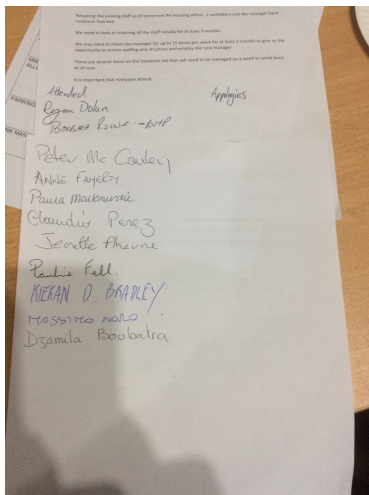 Retaining the existing staff as of tomorrow the housing officer, 2 caretakers and the manager have
contracts that end
We need to look at retaining all the staff initially for at least 3 months.
We may need to retain the manager for up to 15 hours per week for at least 3 months to give us the
opportunity to review staffing and structure and employ the new manager.
There are several items on the handover list that will need to be managed on a week to week basis
as of now
It is important that everyone attend
Attended Appologies
Dolan
BHP
Peter Mc Cauley
ANNE
Paula
Claudio Perez
Jenette Aherne
Pauline Fell.
KIERAN D. BRADLEY
MASSIMO
Djamila Boubatra
PARKING
NK MAN